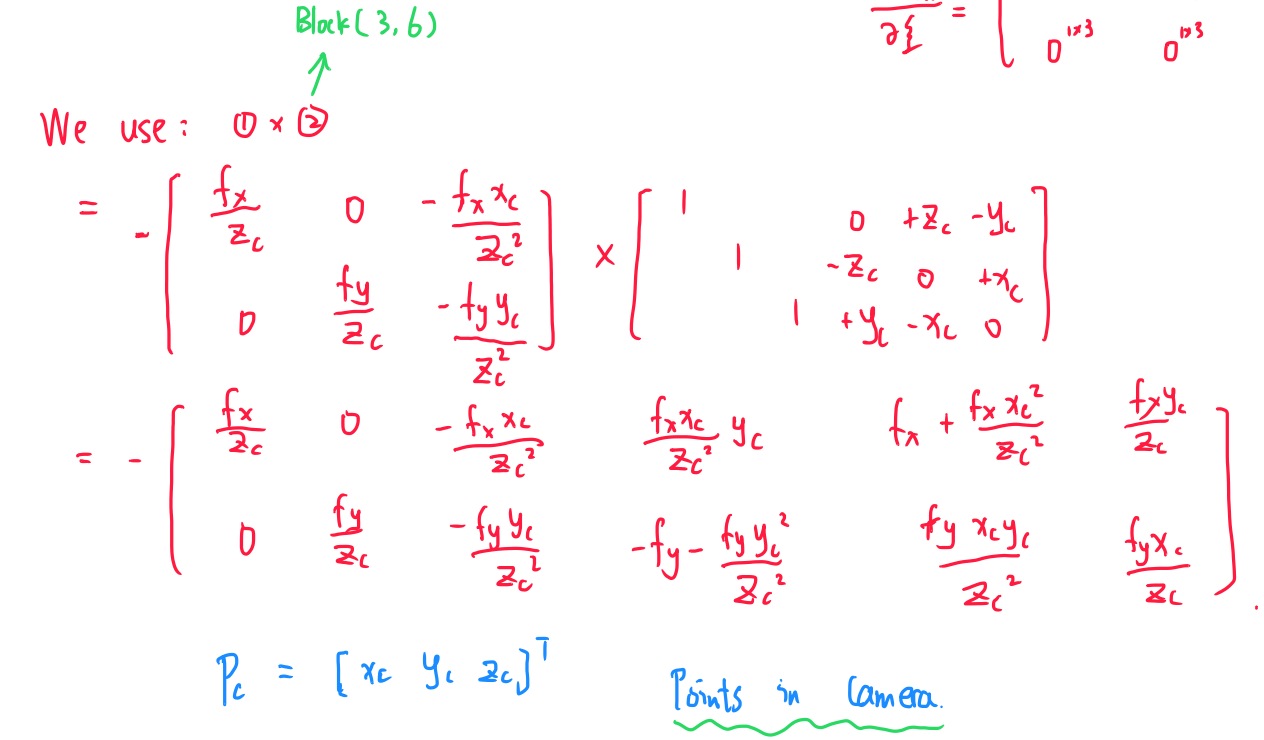 Block(3,6)
∂ξ = [ 0^{1×3} 0^{1×3}
We use: ① × ②
= - [ f_x/z_c 0 -f_x x_c/z_c² ; 0 f_y/z_c -f_y y_c/z_c² ] × [ 1 0 +z_c -y_c ; 1 -z_c 0 +x_c ; 1 +y_c -x_c 0 ]
= - [ f_x/z_c 0 -f_x x_c/z_c² f_x x_c/z_c² y_c f_x + f_x x_c²/z_c² f_x y_c/z_c ; 0 f_y/z_c -f_y y_c/z_c² -f_y - f_y y_c²/z_c² f_y x_c y_c/z_c² f_y x_c/z_c ].
P_c = [ x_c y_c z_c ]^T
Points in Camera.